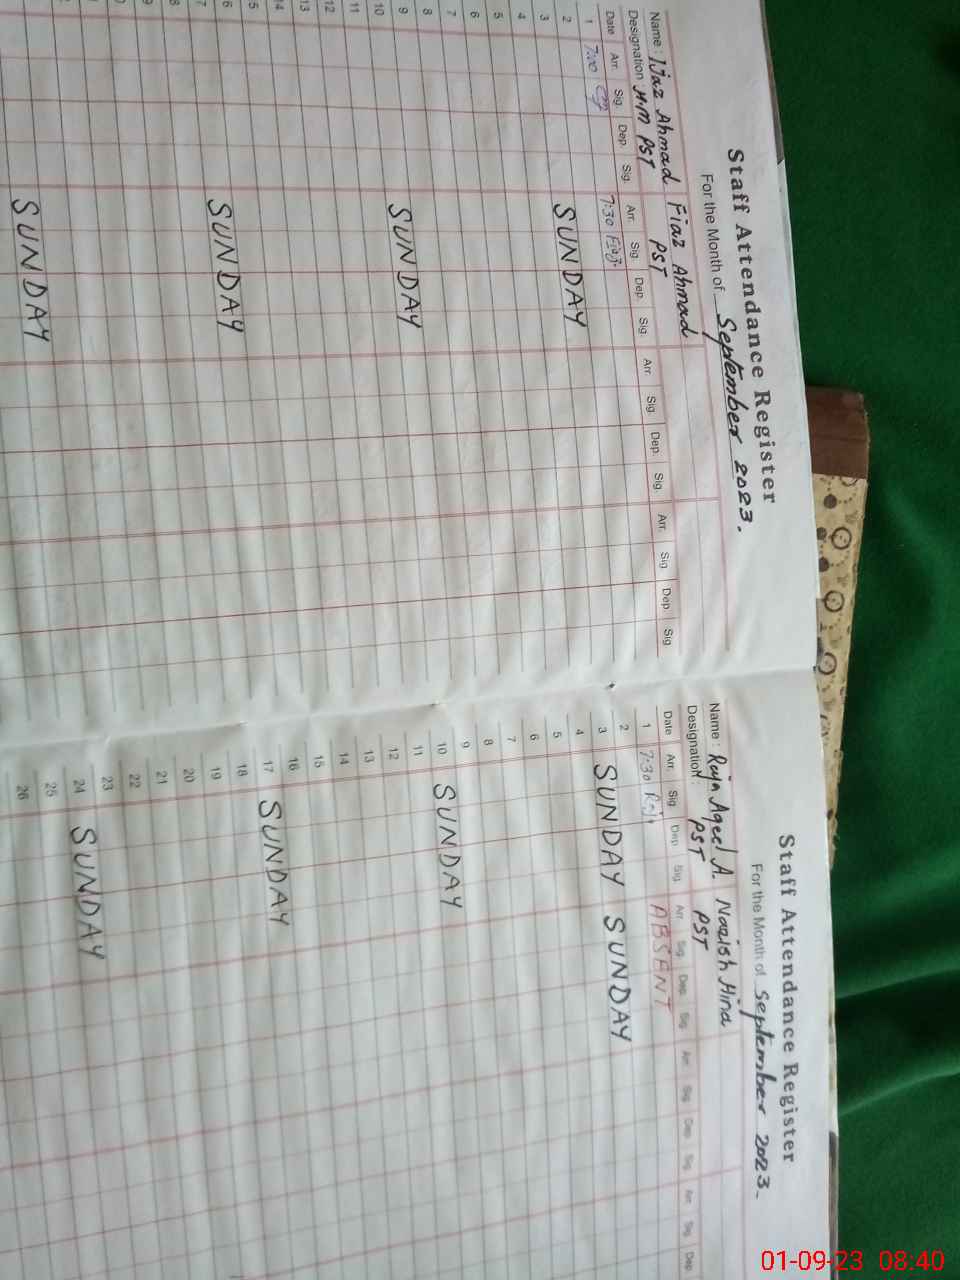 Staff Attendance Register
For the Month of September 2023.
Name : Ijaz Ahmad Fiaz Ahmad
Designation H.M PST PST
Date Arr. Sig. Dep. Sig. Arr. Sig. Dep. Sig. Arr. Sig. Dep. Sig. Arr. Sig Dep Sig
1 7:00 7:30 Fiaz
2
3 SUNDAY
4
5
6
7
8
9
10 SUNDAY
11
12
13
14
5
6
7 SUNDAY
8
9
SUNDAY
Staff Attendance Register
For the Month of September 2023.
Name : Raja Aqeel A. Nazish Hina
Designation : PST PST
Date Arr. Sig Dep Sig. Arr. Sig. Dep. Sig. Arr Sig. Dep Sig. Arr Sig. Dep
1 7:30 Raja ABSENT
2
3 SUNDAY SUNDAY
4
5
6
7
8
9
10 SUNDAY
11
12
13
14
15
16
17 SUNDAY
18
19
20
21
22
23
24 SUNDAY
25
26
01-09-23 08:40